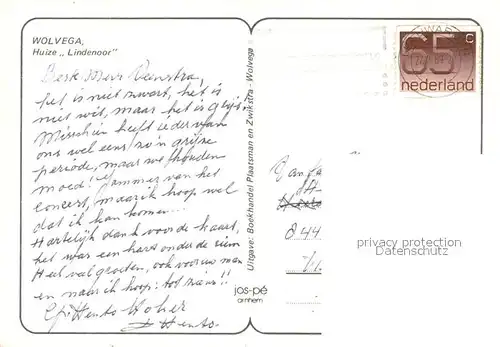 WOLVEGA,
Huize „Lindenoor"
Beste Veenstra,
het is niet zwart, het is
niet wit, maar het is grijs.
Misschien heeft ieder van
ons wel eens zo'n grijze
periode, maar we houden
moed! Jammer van het
concert, maar ik hoop wel
dat ik kan komen...
Hartelijk dank voor de kaart,
het was een hart onder de riem
Heel veel groeten, ook voor uw man
en naar ik hoop: tot ziens!!
Hento
Uitgave: Boekhandel Plaatsman en Zwikstra - Wolvega
jos-pé
arnhem
65 c
nederland
844
privacy protection
Datenschutz